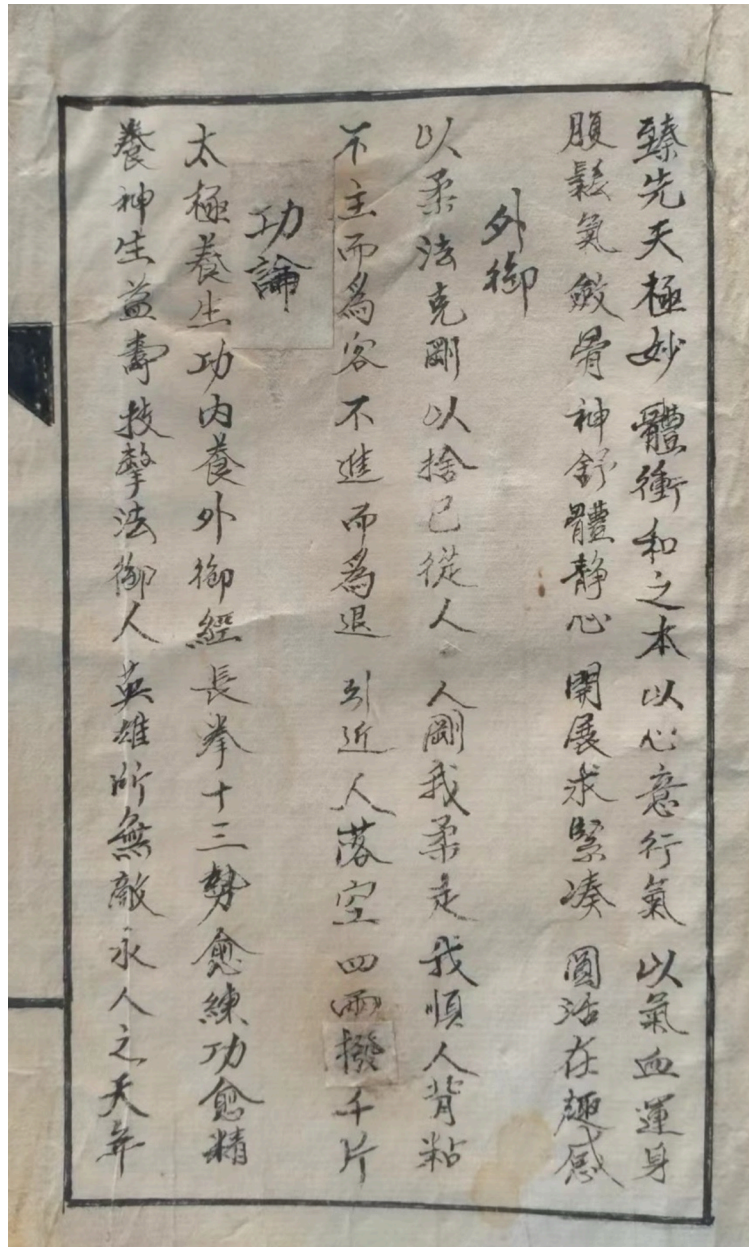 臻先天極妙 體衝和之本以心意行氣 以氣血運身
腹鬆氣斂骨神舒體静心 開展求緊凑 圓活在趣感
外御
以柔法克剛以捨己從人 人剛我柔走我順人背粘
不主而為客不進而為退 引近人落空四兩撥千斤
功論
太極養生功内養外御經長拳十三勢愈練功愈精
養神生益壽技擊法御人英雄所無敵永人之天年